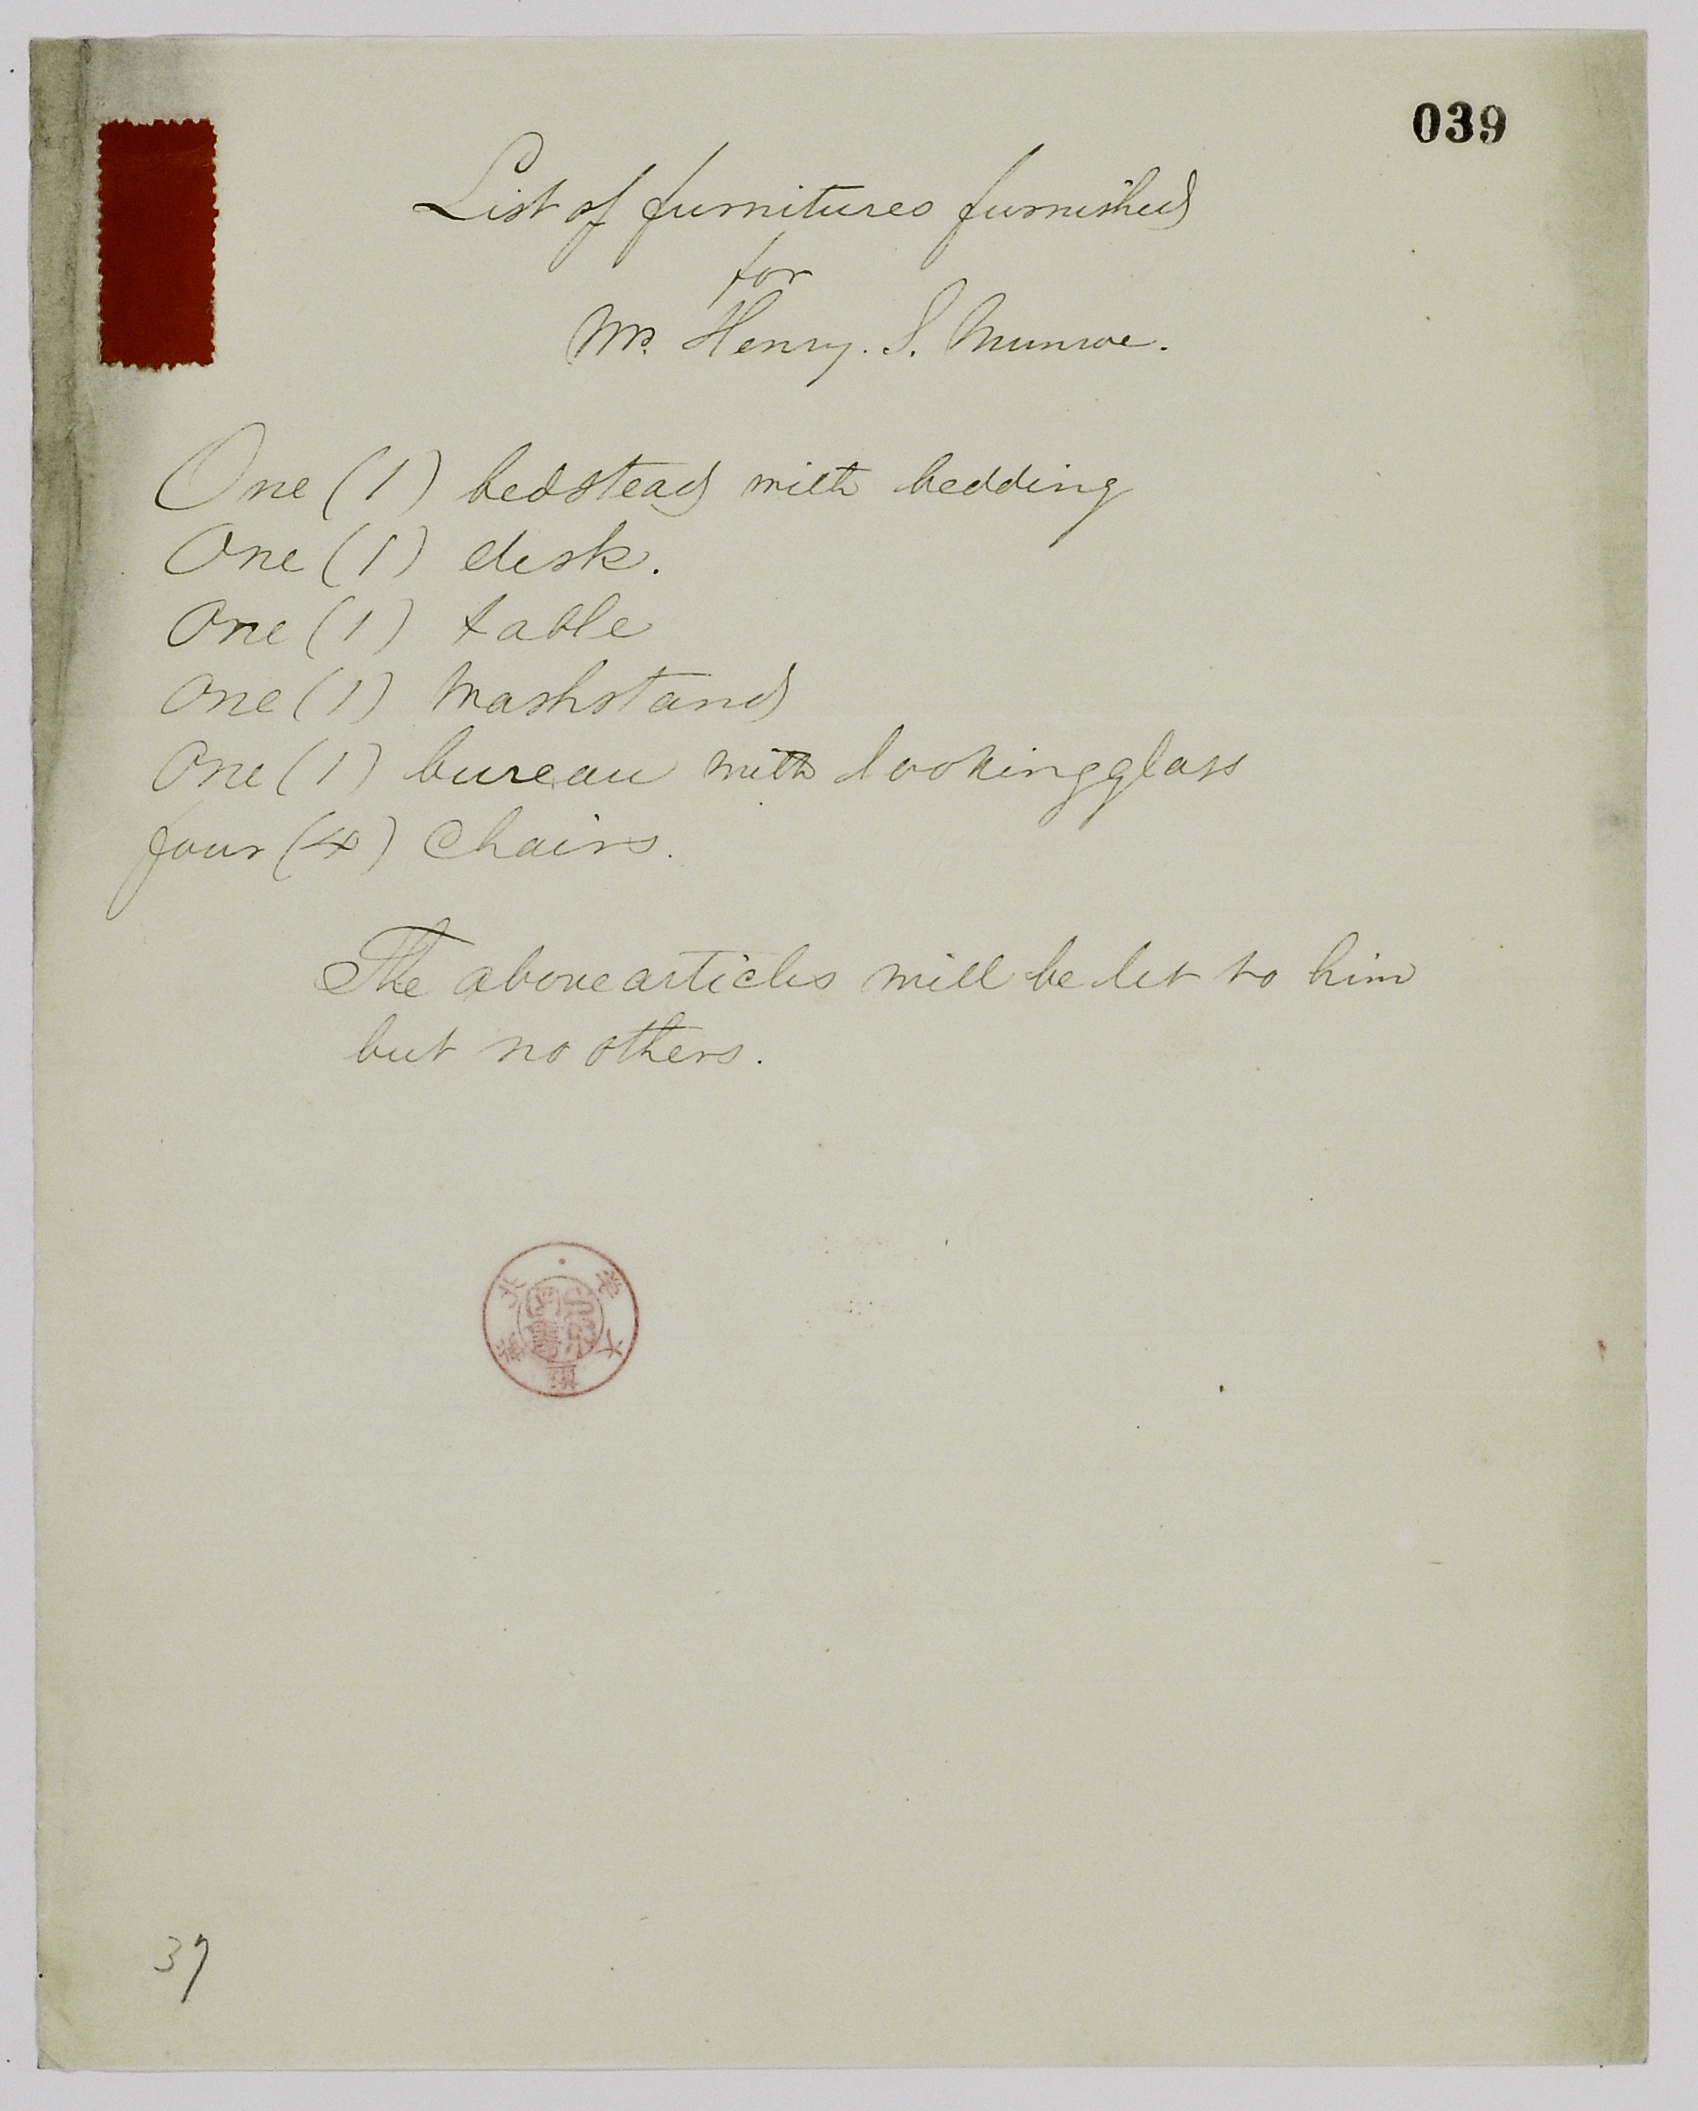 039
List of furnitures furnished
for
Mr. Henry. S. Munroe.
One (1) bedstead with bedding
One (1) desk.
One (1) table
One (1) washstand
One (1) bureau with lookingglass
four (4) Chairs.
The above articles will be let to him
but no others.
37